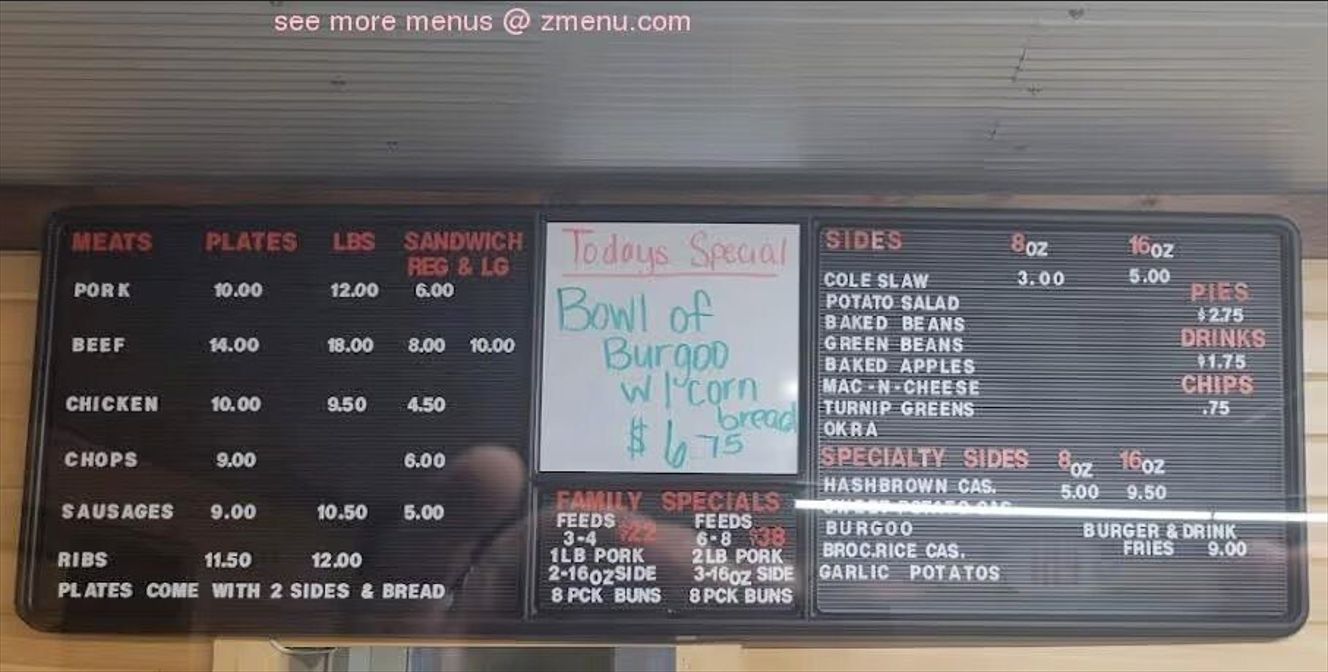 see more menus @ zmenu.com
MEATS PLATES LBS SANDWICH
REG & LG
PORK 10.00 12.00 6.00
BEEF 14.00 18.00 8.00 10.00
CHICKEN 10.00 9.50 4.50
CHOPS 9.00 6.00
SAUSAGES 9.00 10.50 5.00
RIBS 11.50 12.00
PLATES COME WITH 2 SIDES & BREAD
Todays Special
Bowl of
Burgoo
w/ corn
bread
$6.75
FAMILY SPECIALS
FEEDS FEEDS
3-4 $22 6-8 $38
1LB PORK 2LB PORK
2-16OZ SIDE 3-16OZ SIDE
8 PCK BUNS 8 PCK BUNS
SIDES 8OZ 16OZ
COLE SLAW 3.00 5.00
POTATO SALAD
BAKED BEANS
GREEN BEANS
BAKED APPLES
MAC-N-CHEESE
TURNIP GREENS
OKRA
PIES
$2.75
DRINKS
$1.75
CHIPS
.75
SPECIALTY SIDES 8OZ 16OZ
HASHBROWN CAS. 5.00 9.50
BURGOO
BROC.RICE CAS.
GARLIC POTATOS
BURGER & DRINK
FRIES 9.00